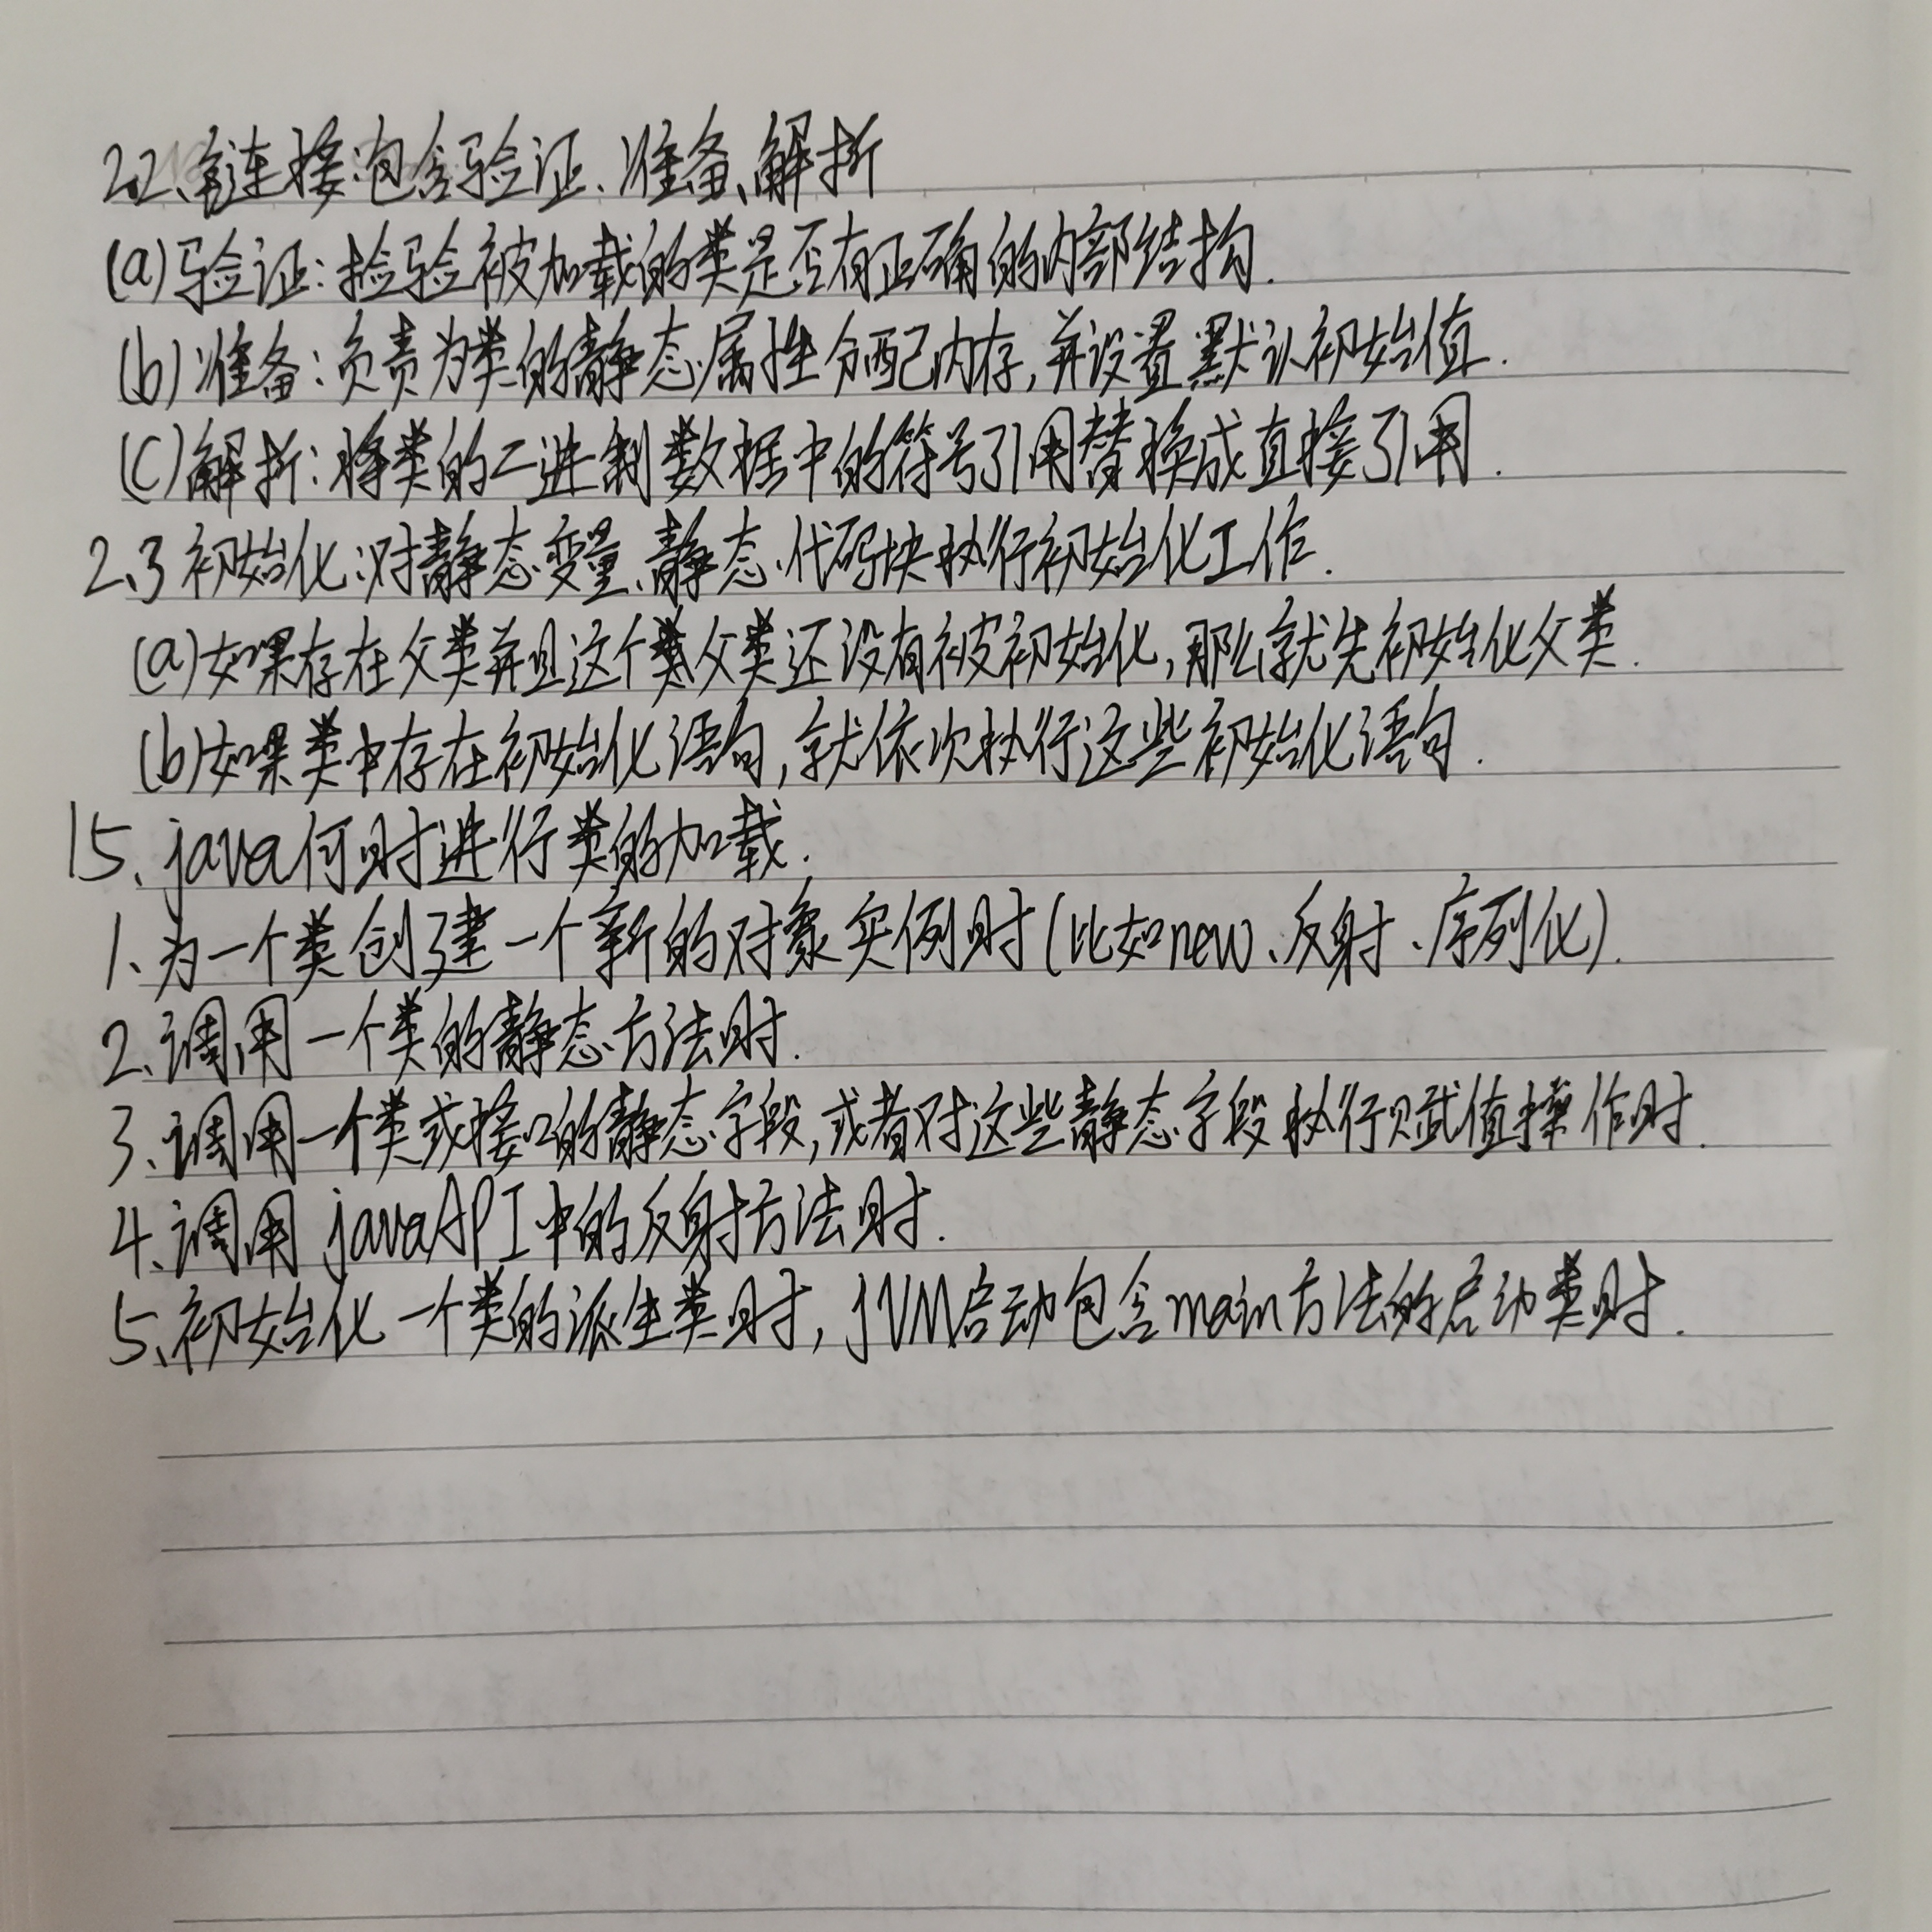 2.2、链接:包含验证、准备、解析
(a)验证:捡验被加载的类是否有正确的内部结构.
(b)准备:负责为类的静态属性分配内存,并设置默认初始值.
(c)解析:将类的二进制数据中的符号引用替换成直接引用.
2、3初始化:对静态变量、静态代码块执行初始化工作.
(a)如果存在父类并且这个类父类还没有被初始化,那么就先初始化父类.
(b)如果类中存在初始化语句,就依次执行这些初始化语句.
15、java何时进行类的加载.
1、为一个类创建一个新的对象实例时(比如new、反射、序列化).
2、调用一个类的静态方法时.
3、调用一个类或接口的静态字段,或者对这些静态字段执行赋值操作时.
4、调用javaAPI中的反射方法时.
5、初始化一个类的派生类时,JVM启动包含main方法的启动类时.